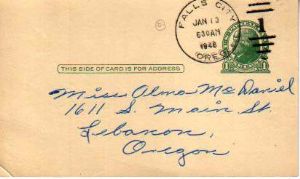 FALLS CITY
JAN 13
630AM
1948
OREG.
1
THIS SIDE OF CARD IS FOR ADDRESS
Miss Alma McDaniel
1611 S. Main St.
Lebanon,
Oregon